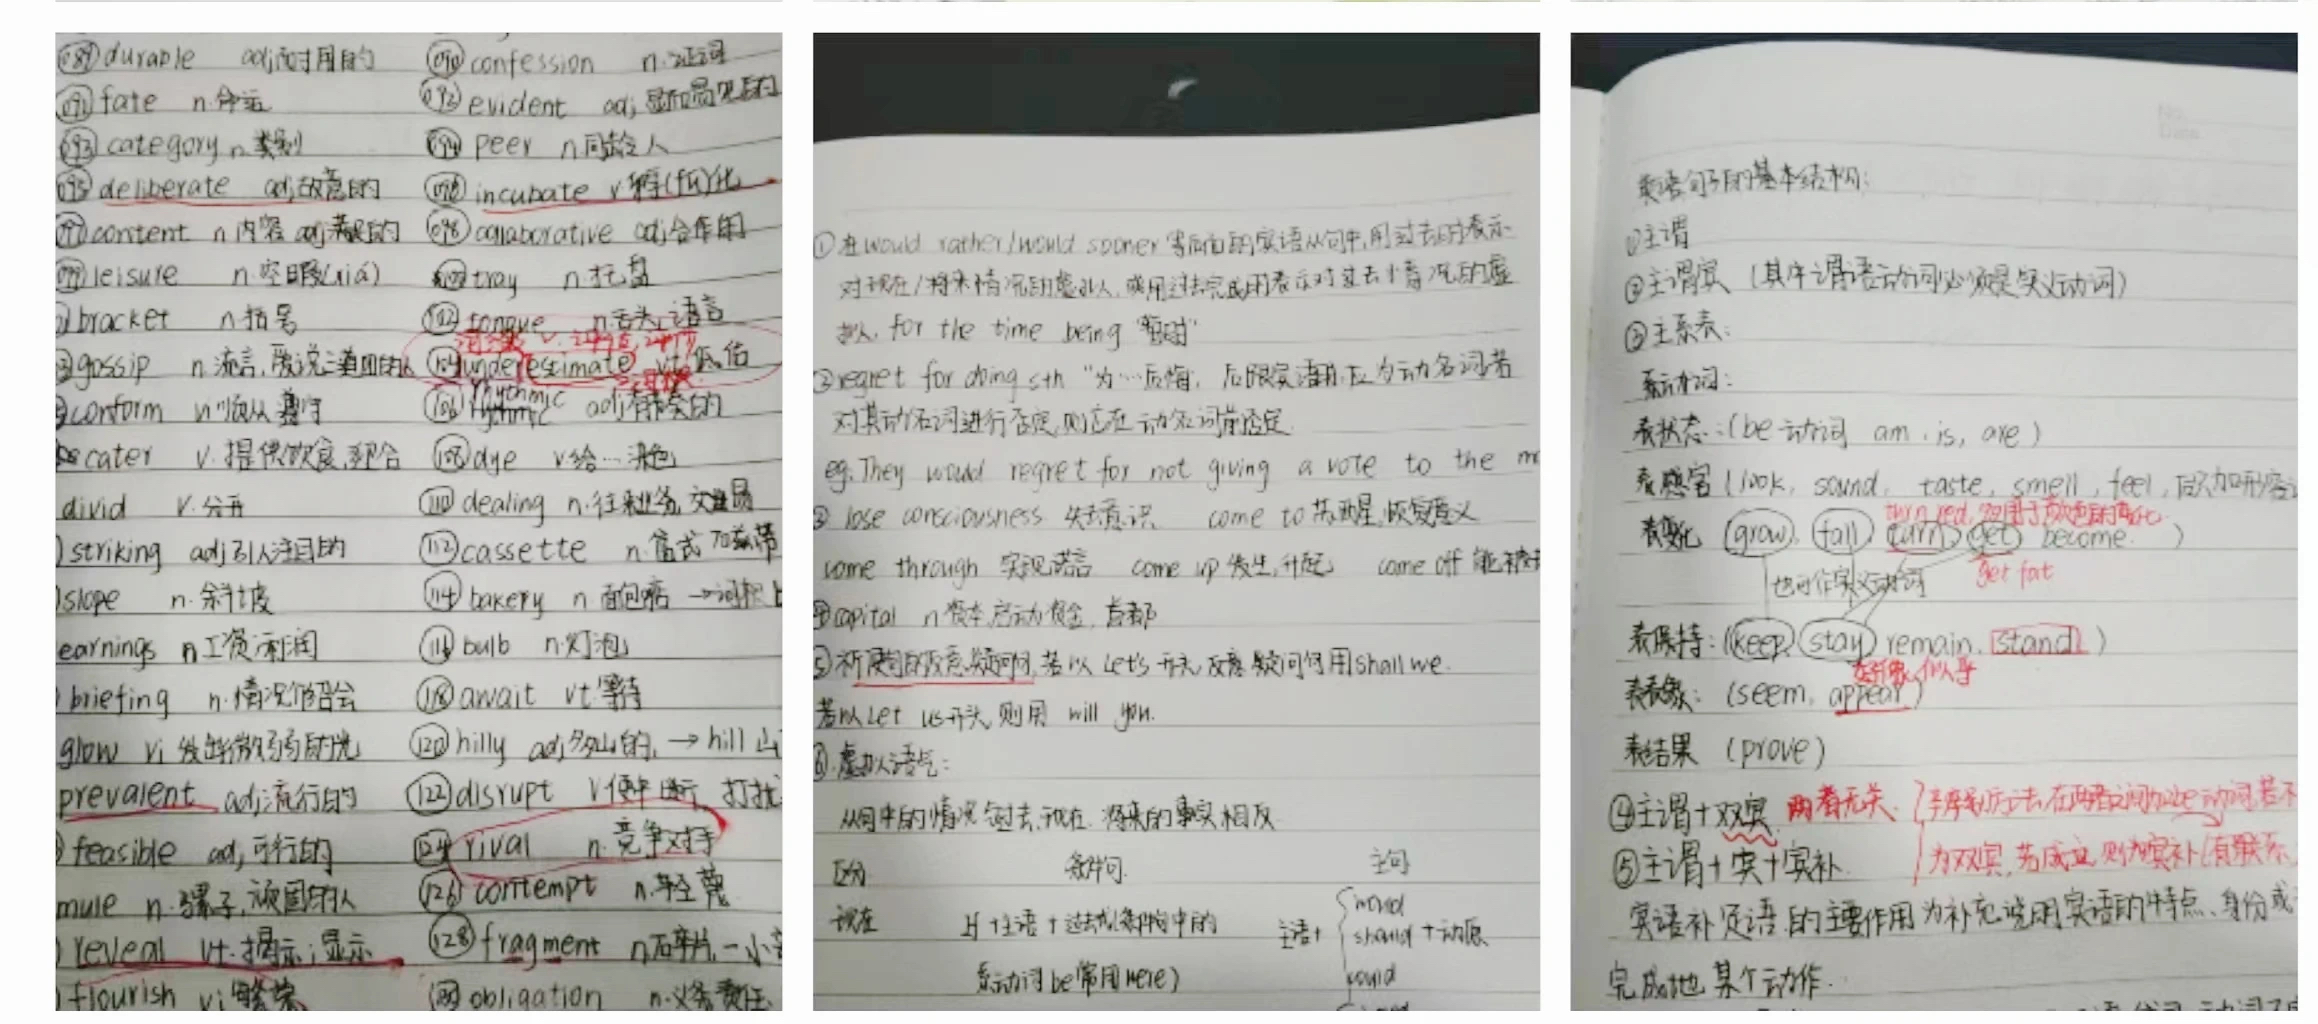 089 durable adj耐用的 090 confession n.证词
091 fate n.命运 092 evident adj,显而易见的
093 category n.类别 094 peer n同龄人
095 deliberate adj,故意的 096 incubate v孵(fū)化
097 content n内容 adj满足的 098 collaborative adj合作的
099 leisure n.空暇(xiá) tray n.托盘
bracket n.括号 102 tongue n.舌头,语言
gossip n.流言, 104 underestimate vt低估
conform vi顺从 遵守 rhythmic
106 rhythmic adj有节奏的
cater v.提供饮食,迎合 108 dye v给…染色
divid v.分开 110 dealing n.往来业务,
striking adj引人注目的 112 cassette n.
slope n.斜坡 114 bakery n面包店 →
earnings n工资,利润 116 bulb n.灯泡
briefing n.情况介绍会 118 await vt.等待
glow vi 发出微弱的光 120 hilly adj多山的, → hill 山
prevalent adj流行的 122 disrupt v使中断 打扰
feasible adj可行的 124 rival n.竞争对手
mule n.骡子,顽固的人 126 contempt n.轻蔑
reveal vt.揭示;显示 128 fragment n碎片,一小
flourish vi繁荣 130 obligation n.义务责任
①在would rather/would sooner等后面的宾语从句中,用过去时表示
对现在/将来情况的虚拟,或用过去完成时表示对过去情况的虚
拟. for the time being "暂时"
②regret for doing sth "为…后悔, 后跟宾语时,应为动名词若
对其动名词进行否定,则应在动名词前否定.
eg. They would regret for not giving a vote to the
③ lose consciousness 失去意识 come to 苏醒,恢复意义
come through 实现诺言 come up 发生,升起 come off
④capital n资本,启动资金,首都
⑤祈使句的反意疑问句,若以 Let's 开头,反意疑问句用shall we.
若以Let us开头,则用 will you.
⑥.虚拟语气:
从句中的情况与过去,现在,将来的事实相反
区分 条件句 主句
现在 If +主语+过去式(条件句中的 主语+ would should +动原
系动词be常用were) could
英语句子的基本结构:
①主谓
②主谓宾 (其中谓语动词必须是实义动词)
③主系表:
系动词:
表状态:(be动词 am, is, are)
表感官(look, sound, taste, smell, feel,后只加形容
turn red,常用于颜色的变化
表变化 (grow, fall turn get become. )
也可作实义动词 get fat
表保持:(keep stay remain, stand )
好像,似乎
表表象: (seem, appear)
表结果 (prove)
④主谓+双宾 两者无关. 在两者之间加be动词,若不
⑤主谓+宾+宾补. 为双宾,若成立,则为宾补(有联系
宾语补足语的主要作用为补充说明宾语的特点、身份或
完成地某个动作.